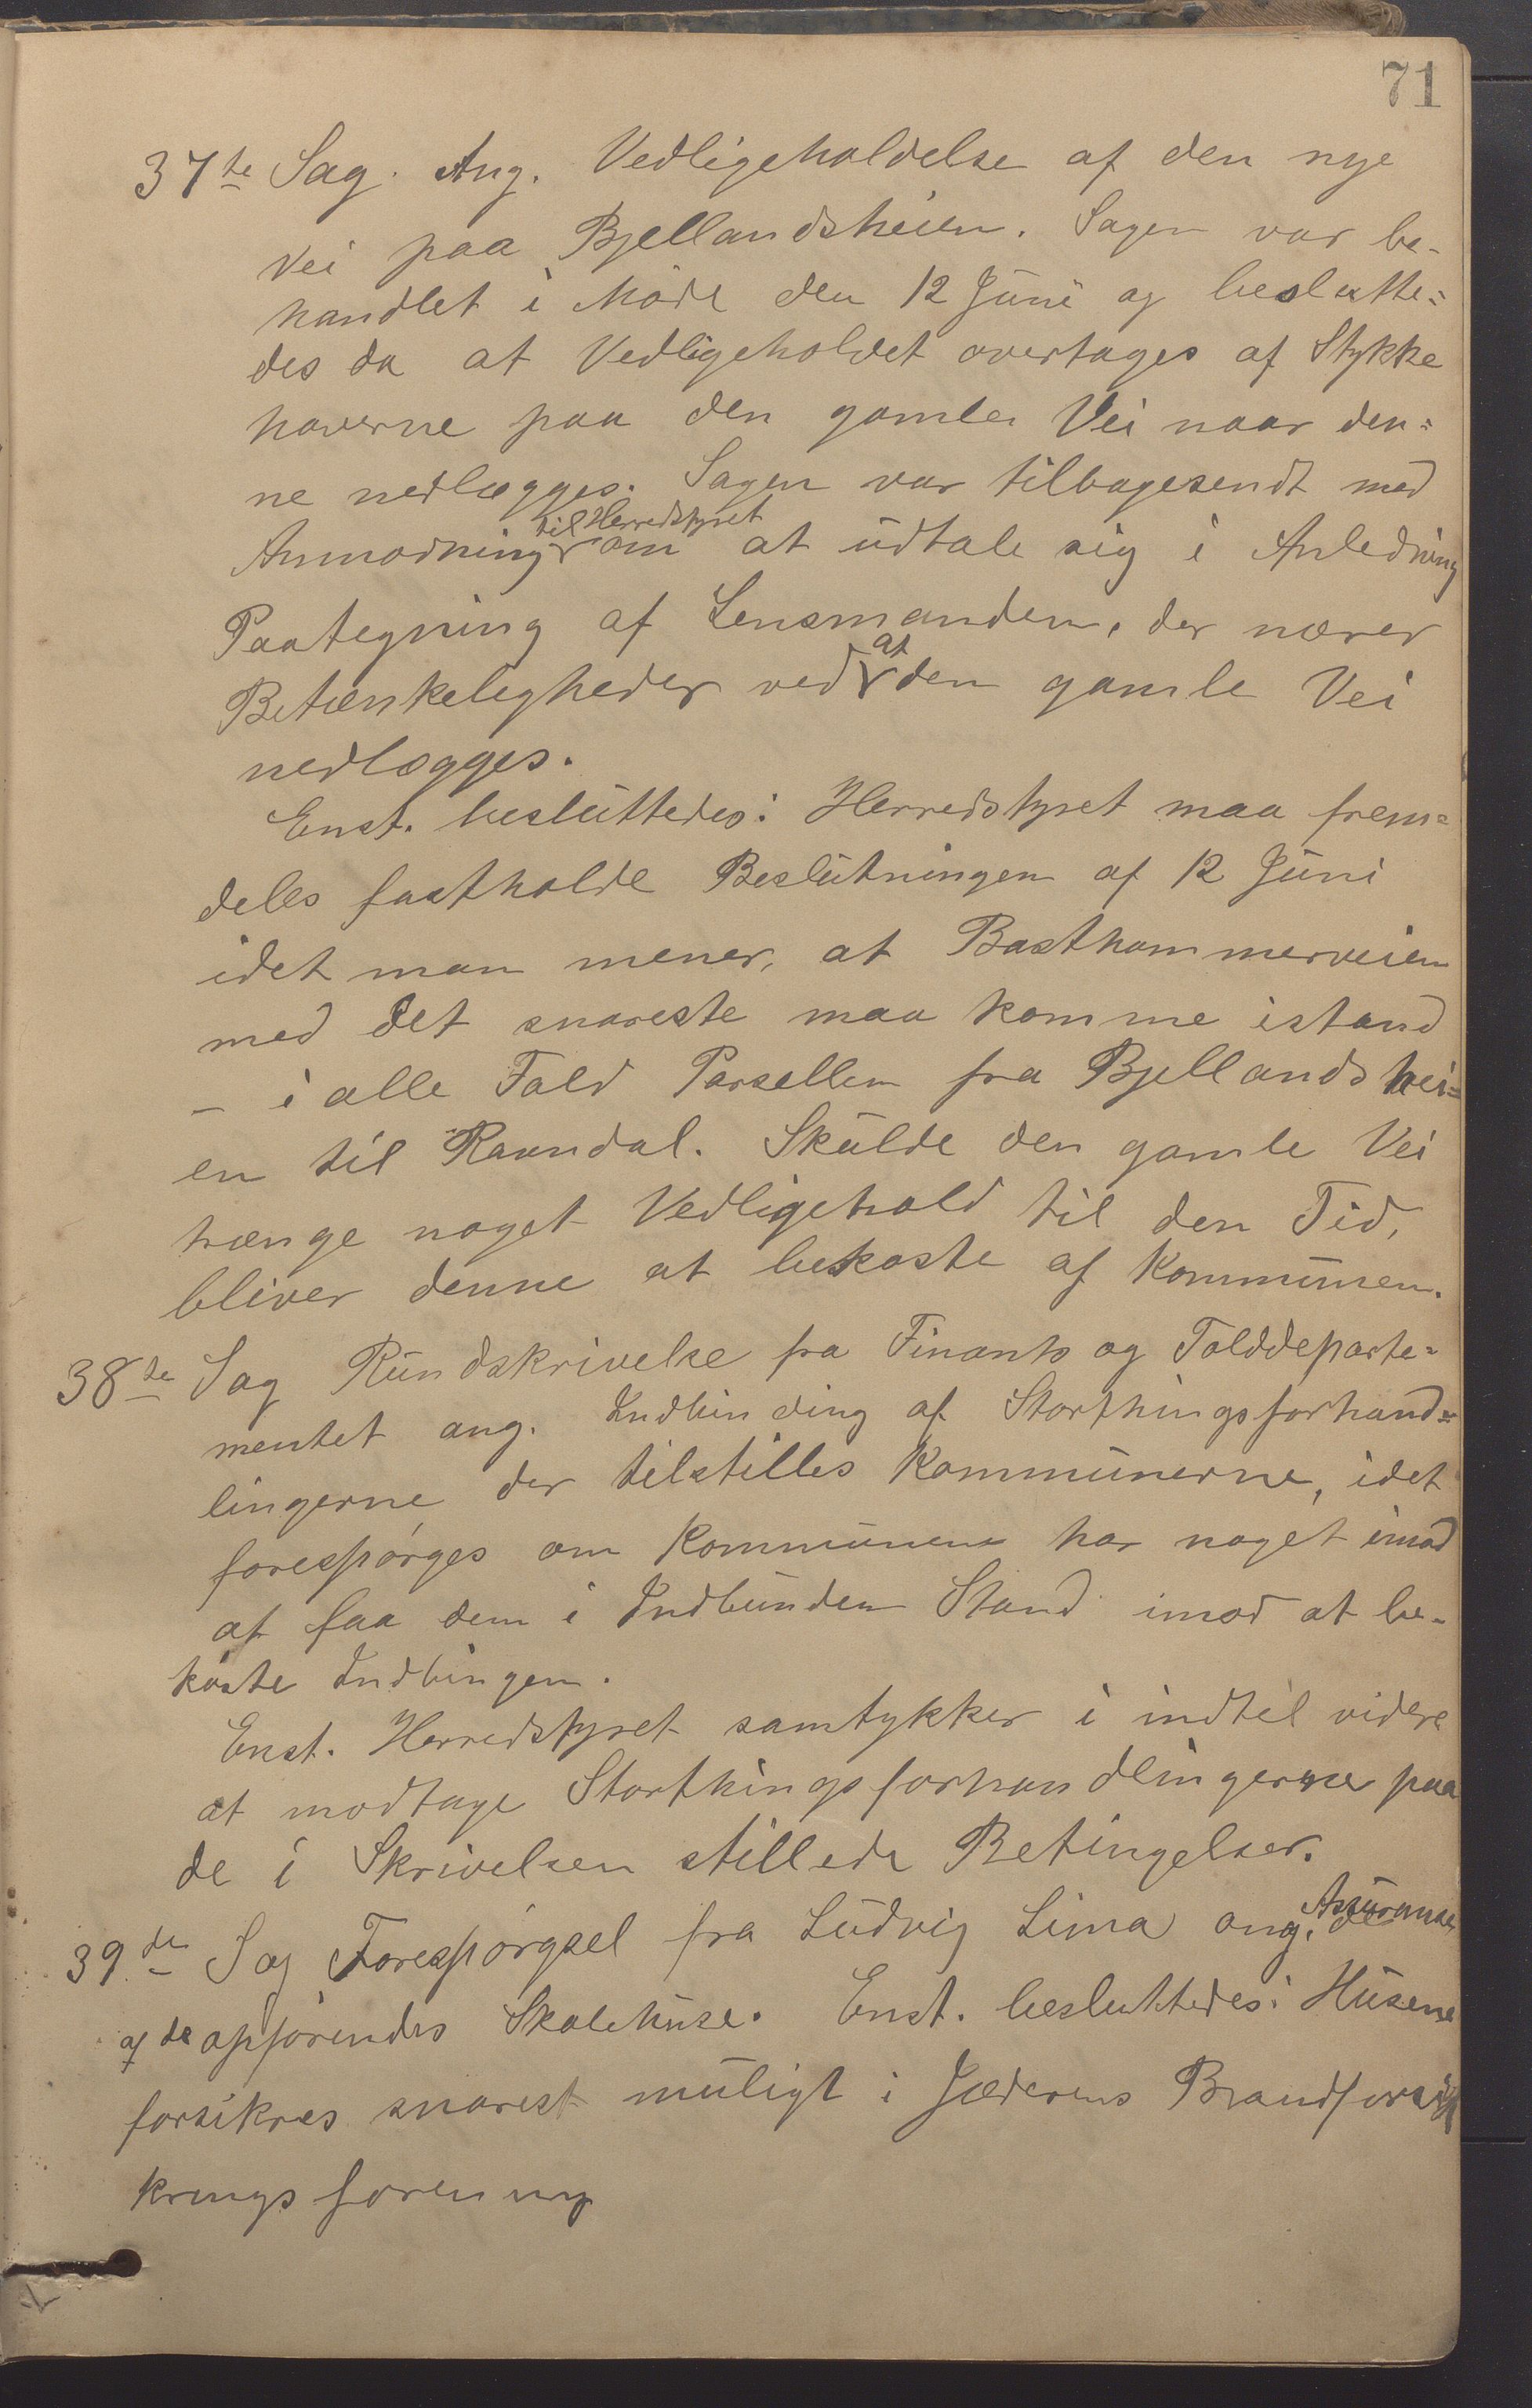 71
37te Sag. Ang. Vedligeholdelse af den nye
Vei paa Bjellandsheien. Sagen var be-
handlet i Møde den 12 Juni og beslutte=
des da at Vedligeholdet overtages af Stykke
haverne paa den gamle Vei naar den=
ne nedlægges. Sagen var tilbagesendt med
til Herredstyret
Anmodning om at udtale sig i Anledning
Paategning af Lensmanden, der nærer
at
Betænkeligheder ved den gamle Vei
nedlægges.
Enst. besluttedes: Herredstyret maa frem=
deles fastholde Beslutningen af 12 Juni
idet man mener, at Basthammerveien
med det snareste maa komme istand
– i alle Fald Parsellen fra Bjellandshei=
en til Ravndal. Skulde den gamle Vei
trænge noget Vedligehold til den Tid,
bliver denne at bekoste af Kommunen.
38te Sag Rundskrivelse fra Finants og Tolddeparte=
mentet ang. Indbinding af Storthingsforhand=
lingerne der tilstilles Kommunerne, idet
forespørges om Kommunen har noget imod
at faa dem i Indbunden Stand imod at be-
koste Indbingen.
Enst. Herredstyret samtykker i indtil videre
at modtage Storthingsforhandlingerne paa
de i Skrivelsen stillede Betingelser.
Assurance
39de Sag Forespørgsel fra Ludvig Lima ang. de
af de opførendes Skolehuse. Enst. besluttedes: Husene
forsikres snarest muligt i Jæderens Brandforsik
kringsforening